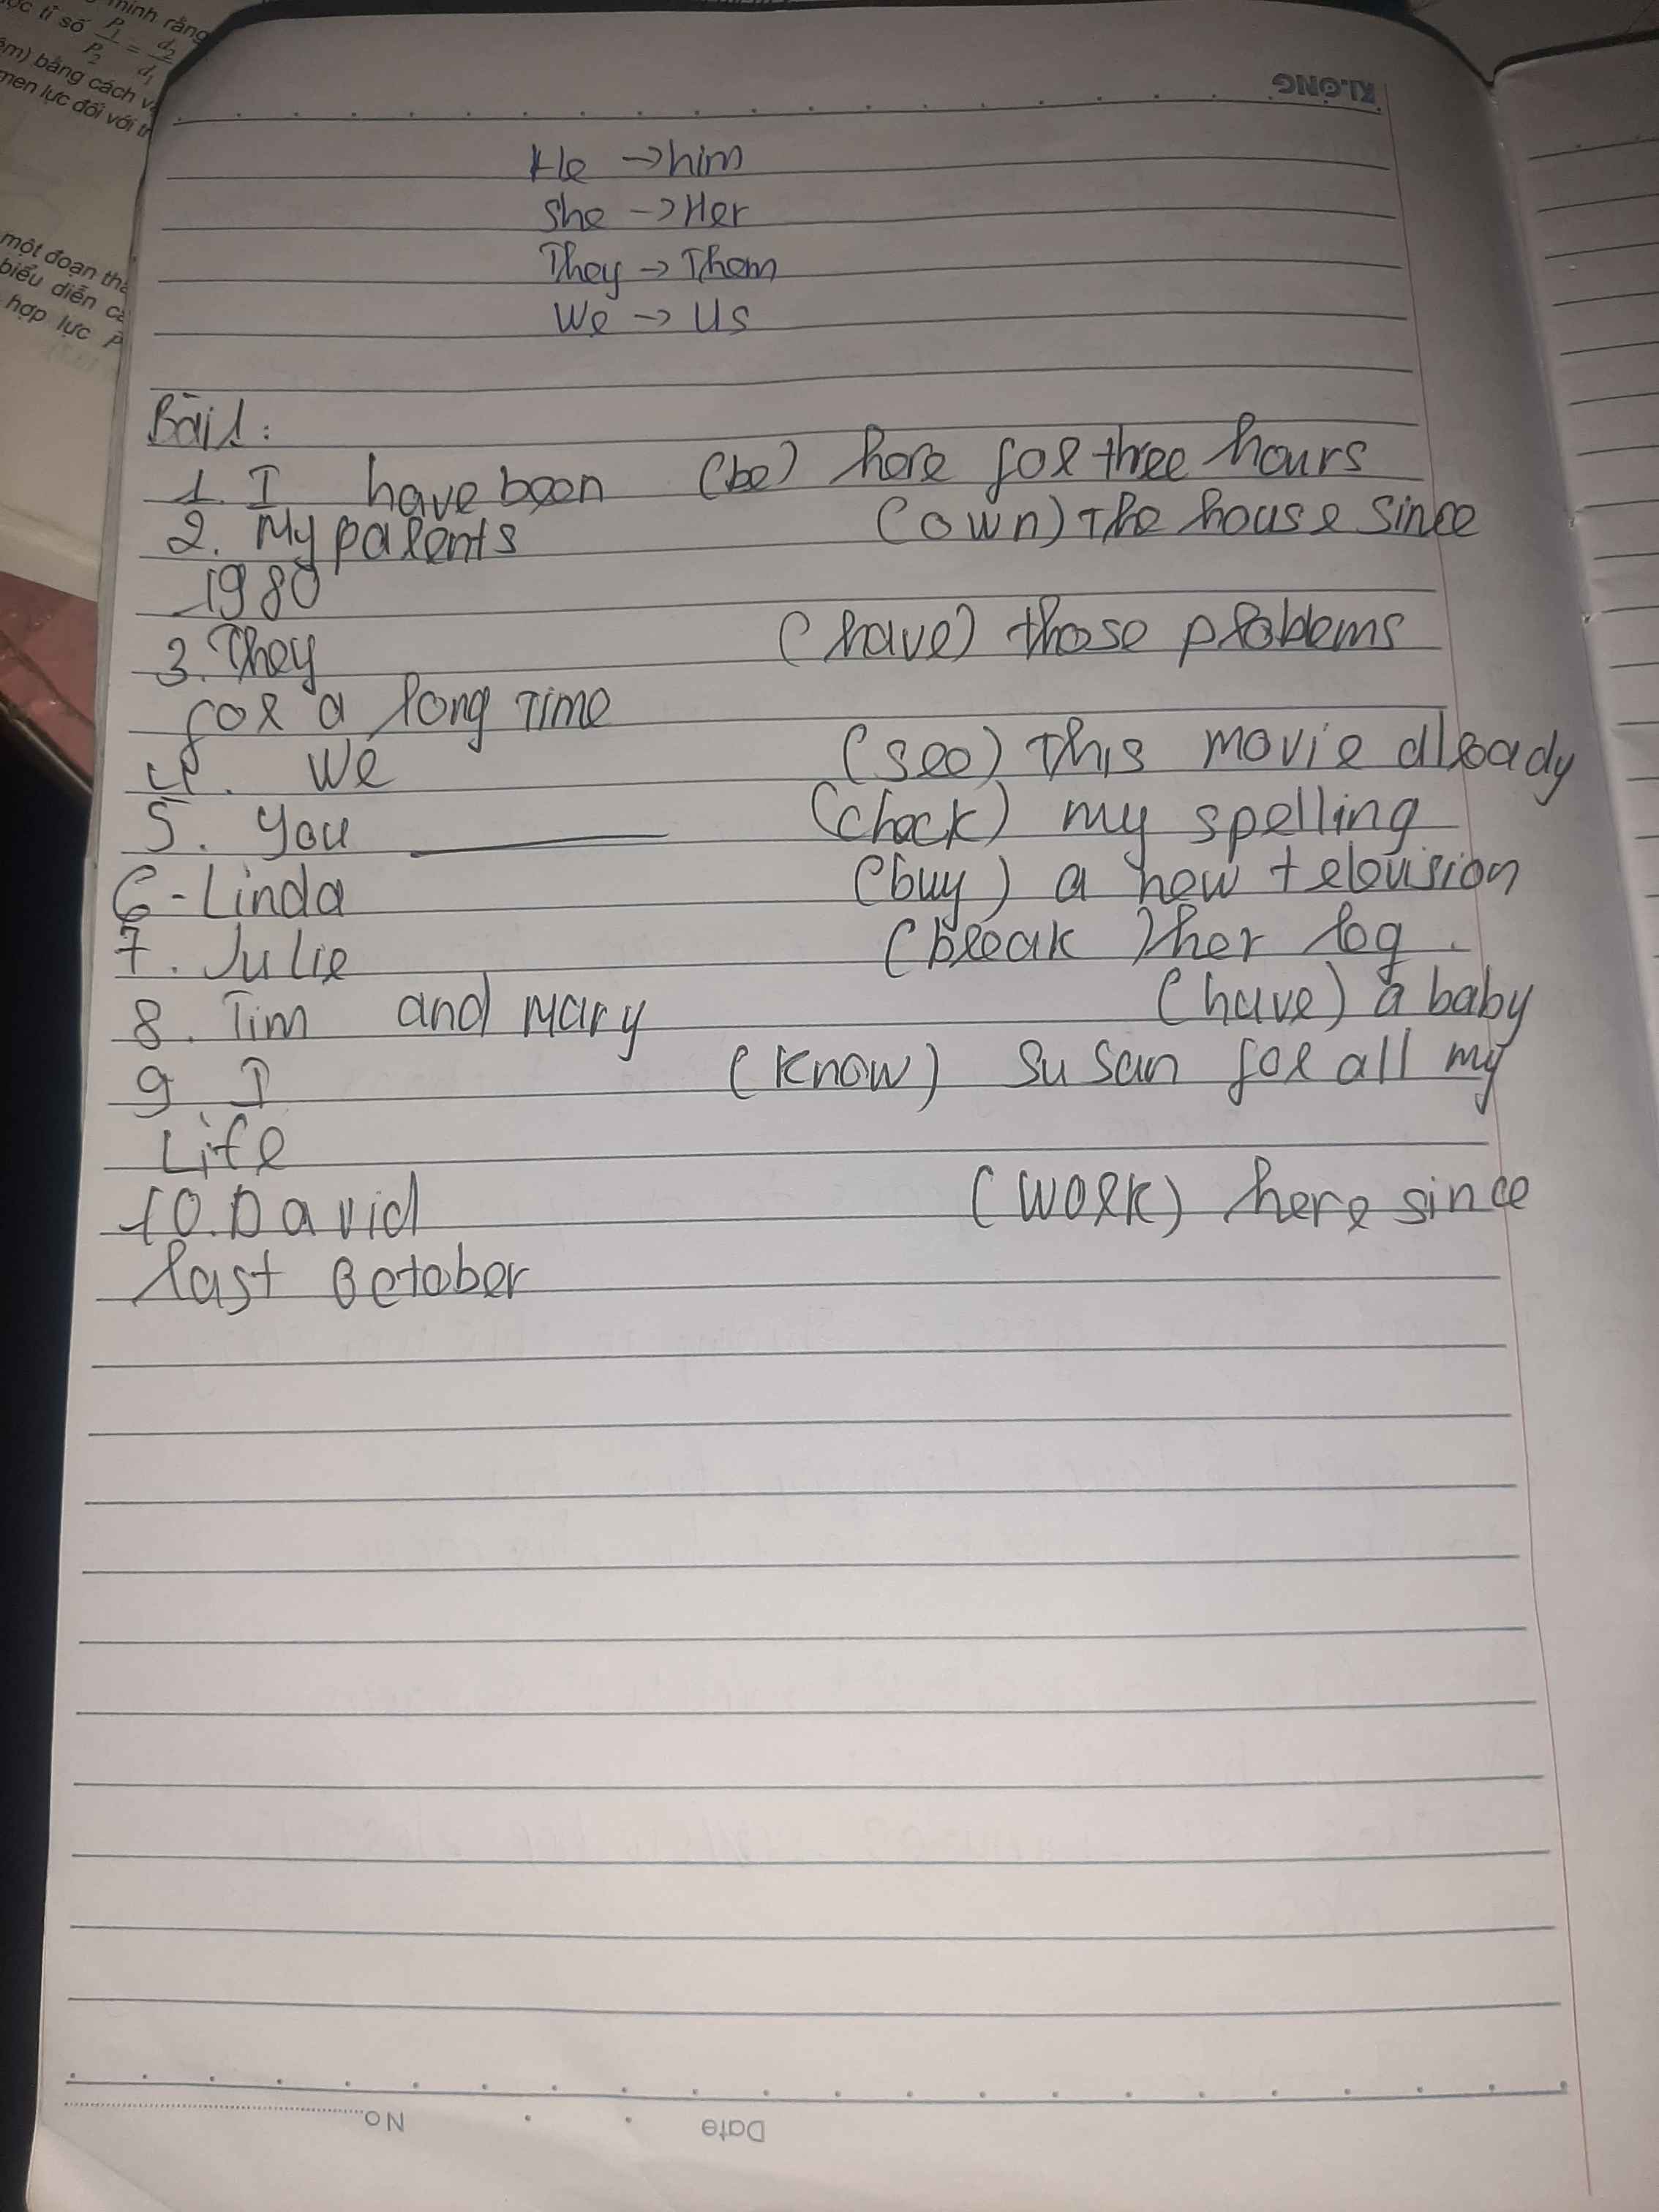 minh rằng
ợc tỉ số P₁/P₂ = d₂/d₁
ểm) bằng cách v
men lực đối với tr
một đoạn thẳ
biểu diễn cá
hợp lực P
KLONG
He → him
She → Her
They → Them
We → Us
Bài 1:
1. I have been (be) here for three hours
2. My parents (own) The house since
1980
3. They (have) those problems
for a long Time
4. We (see) This movie already
5. You ______ (check) my spelling
6 - Linda (buy) a new television
7. Julie (break) her leg.
8. Tim and Mary (have) a baby
9 I (know) Susan for all my
Life
10. David (work) here since
last October
No
Date